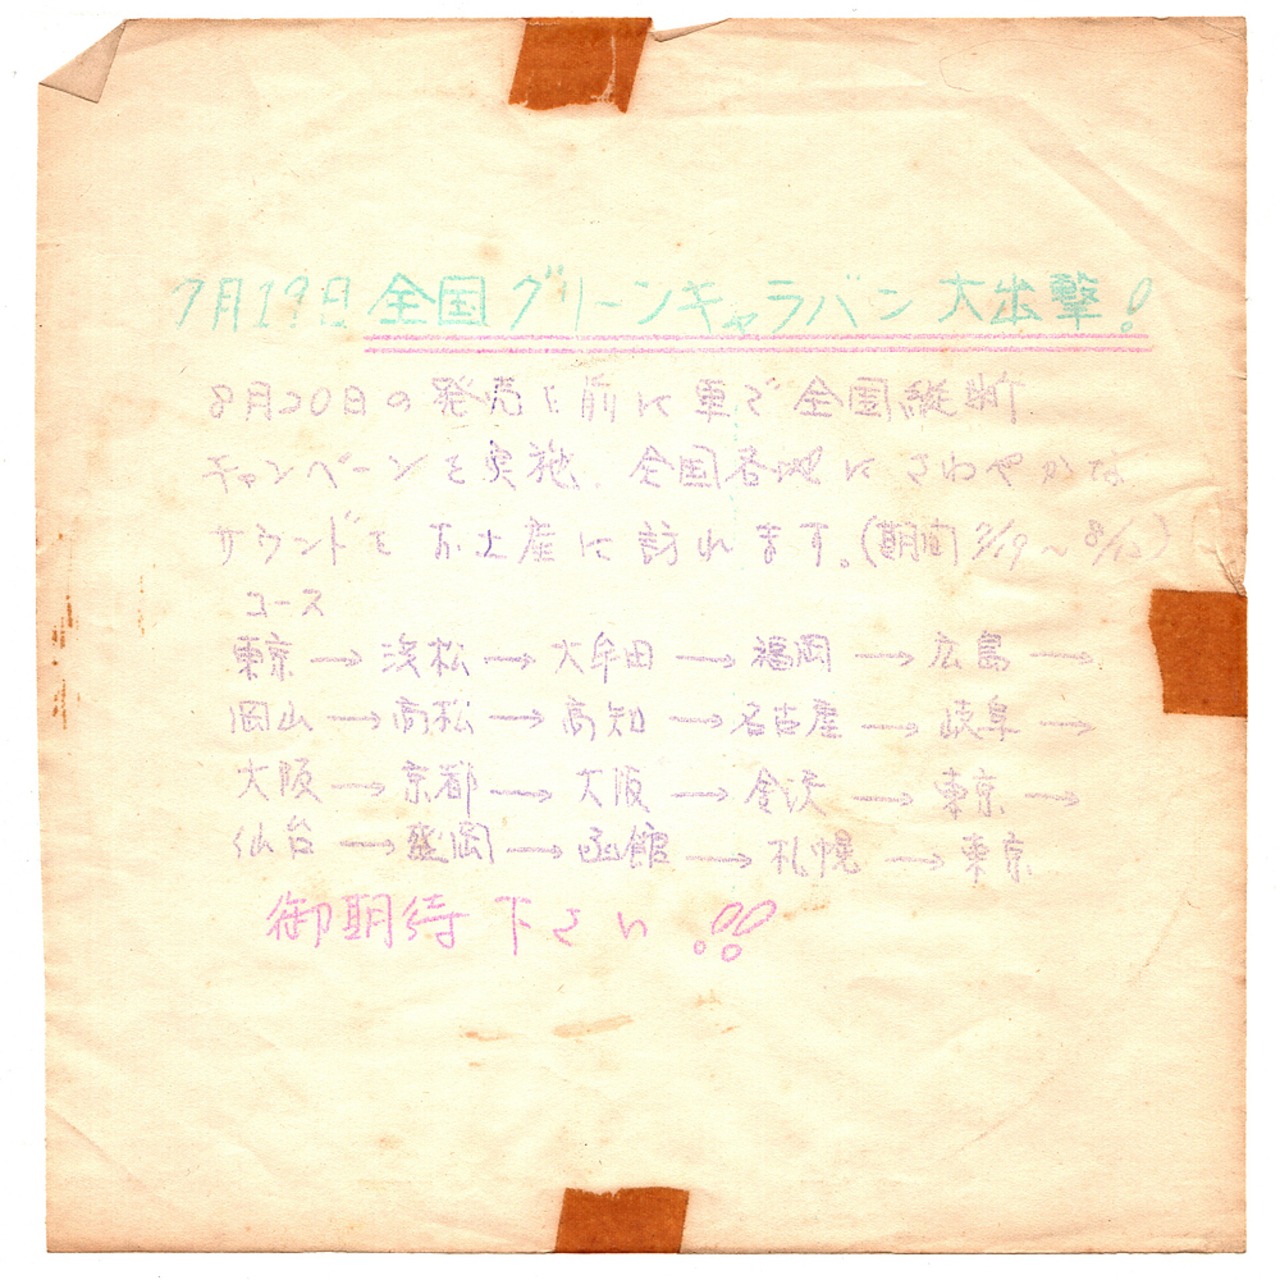 7月19日 全国グリーンキャラバン 大出撃!
8月20日の発売を前に車で全国縦断
キャンペーンを実施. 全国各地にさわやかな
サウンドをお土産に訪れます。(期間 7/19～8/12)
コース
東京→浜松→大牟田→福岡→広島→
岡山→高松→高知→名古屋→岐阜→
大阪→京都→大阪→金沢→東京→
仙台→盛岡→函館→札幌→東京
御期待下さい!!